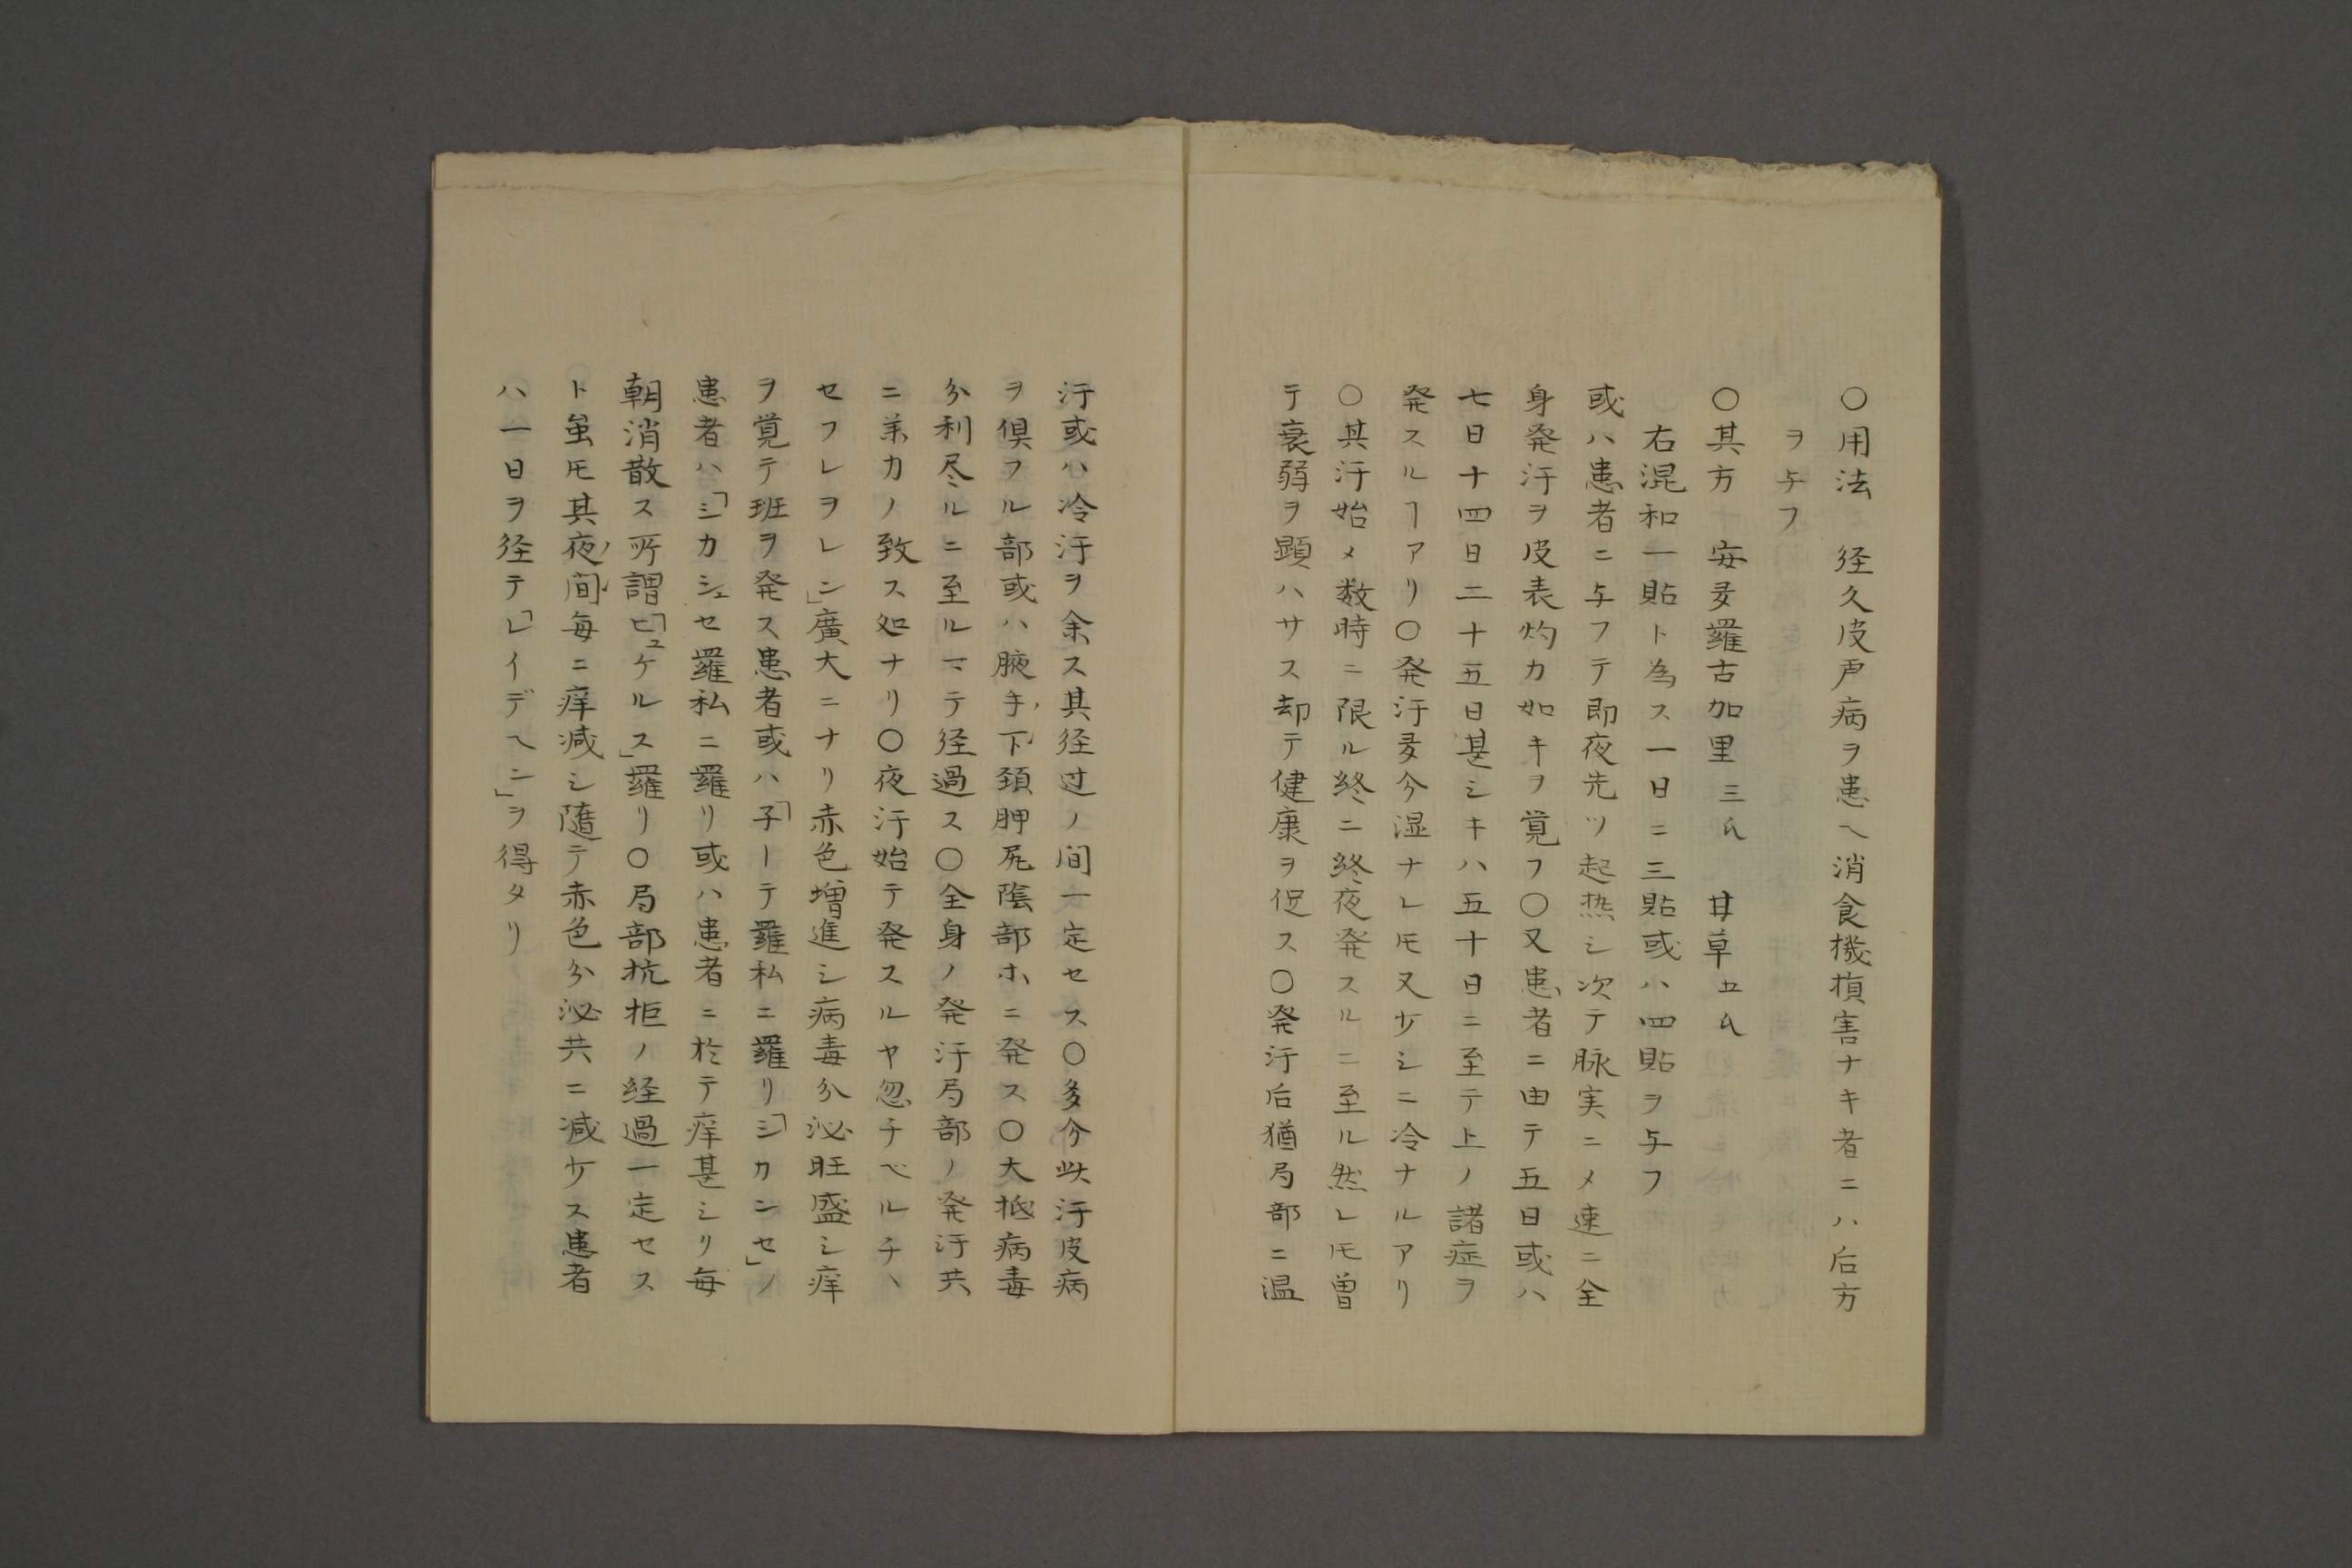 〇用法　径久皮声病ヲ患ヘ消食機損害ナキ者ニハ后方
ヲ与フ
〇其方　安多羅古加里三氏　甘草五氏
右混和一貼ト為ス一日ニ三貼或ハ四貼ヲ与フ
或ハ患者ニ与フテ即夜先ツ起热シ次テ脉実ニメ速ニ全
身発汗ヲ皮表灼カ如キヲ覚フ〇又患者ニ由テ五日或ハ
七日十四日二十五日甚シキハ五十日ニ至テ上ノ諸症ヲ
発スルヿアリ〇発汗多分湿ナレ𪜈又少シニ冷ナルアリ
〇其汗始メ数時ニ限ル終ニ終夜発スルニ至ル然レ𪜈曽
テ衰弱ヲ顕ハサス却テ健康ヲ促ス〇発汗后猶局部ニ温
汗或ハ冷汗ヲ余ス其径过ノ间一定セス〇多分此汗皮病
ヲ倶フル部或ハ腋手下頚胛尻陰部ホニ発ス〇大抵病毒
分利尽ルニ至ルマテ径過ス〇全身ノ発汗局部ノ発汗共
ニ羊カノ致ス処ナリ〇夜汗始テ発スルヤ忽チベルチヽ
セフレヲレン」廣大ニナリ赤色増進シ病毒分泌旺盛シ痒
ヲ覚テ班ヲ発ス患者或ハ「子ーテ羅私ニ羅リ「シカンセ」ノ
患者ハ「シカシェセ羅私ニ羅リ或ハ患者ニ於テ痒甚シリ毎
朝消散ス所謂「ヒュケルス」羅リ〇局部抗拒ノ経過一定セス
ト虽𪜈其夜间毎ニ痒減シ随テ赤色分泌共ニ減少ス患者
ハ一日ヲ径テ「レイデヘン」ヲ得タリ